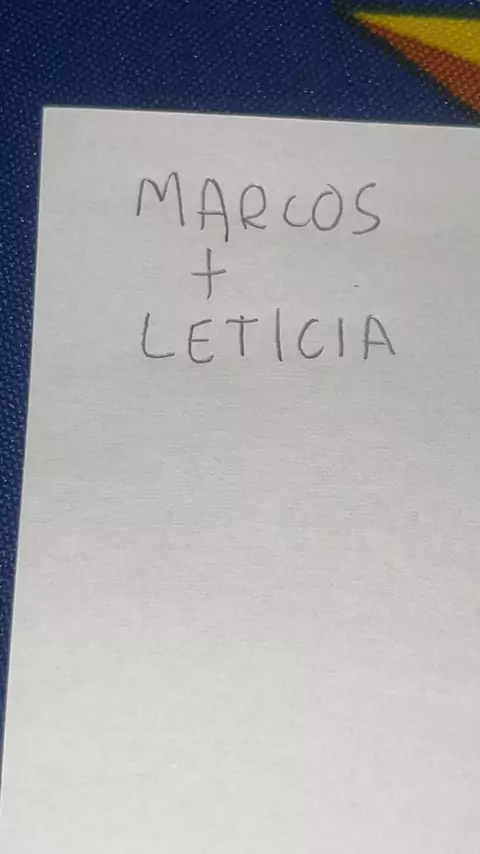 MARCOS
+
LETICIA